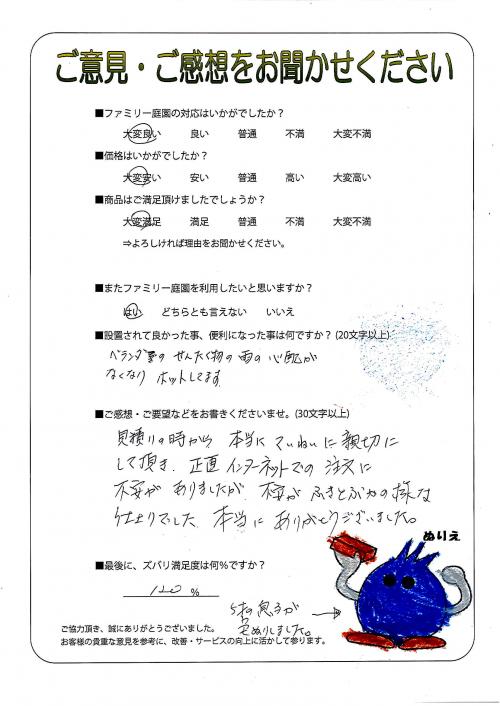 ご意見・ご感想をお聞かせください
■ファミリー庭園の対応はいかがでしたか？
大変良い 良い 普通 不満 大変不満
■価格はいかがでしたか？
大変安い 安い 普通 高い 大変高い
■商品はご満足頂けましたでしょうか？
大変満足 満足 普通 不満 大変不満
⇒よろしければ理由をお聞かせください。
■またファミリー庭園を利用したいと思いますか？
はい どちらとも言えない いいえ
■設置されて良かった事、便利になった事は何ですか？(20文字以上)
ベランダ の せんたく物の雨の心配が
なくなり ホットしてます
■ご感想・ご要望などをお書きくださいませ。(30文字以上)
見積りの時から 本当に ていねいに 親切に
して頂き、正直 インターネットでの 注文に
不安が ありましたが、不安が ふきとぶかの様な
仕上りでした、本当に ありがとうございました。
ぬりえ
■最後に、ズバリ満足度は何％ですか？
120 %
5才の息子が
ぬりしました。
ご協力頂き、誠にありがとうございました。
お客様の貴重な意見を参考に、改善・サービスの向上に活かして参ります。